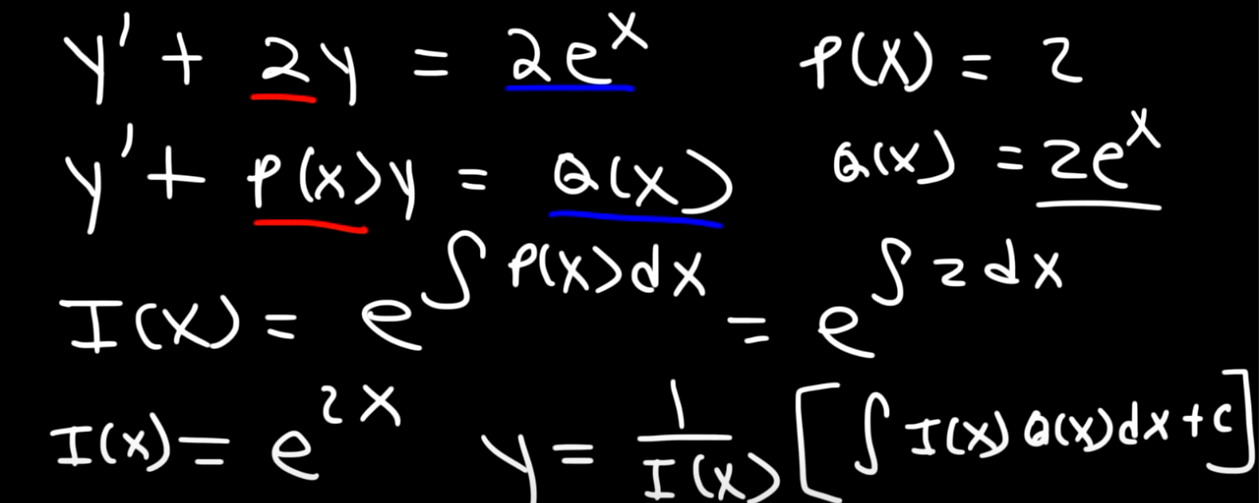 y' + 2y = 2e^x P(x) = 2
y' + P(x)y = Q(x) Q(x) = 2e^x
I(x) = e^∫P(x)dx = e^∫2dx
I(x) = e^2x y = 1/I(x) [∫I(x)Q(x)dx + c]